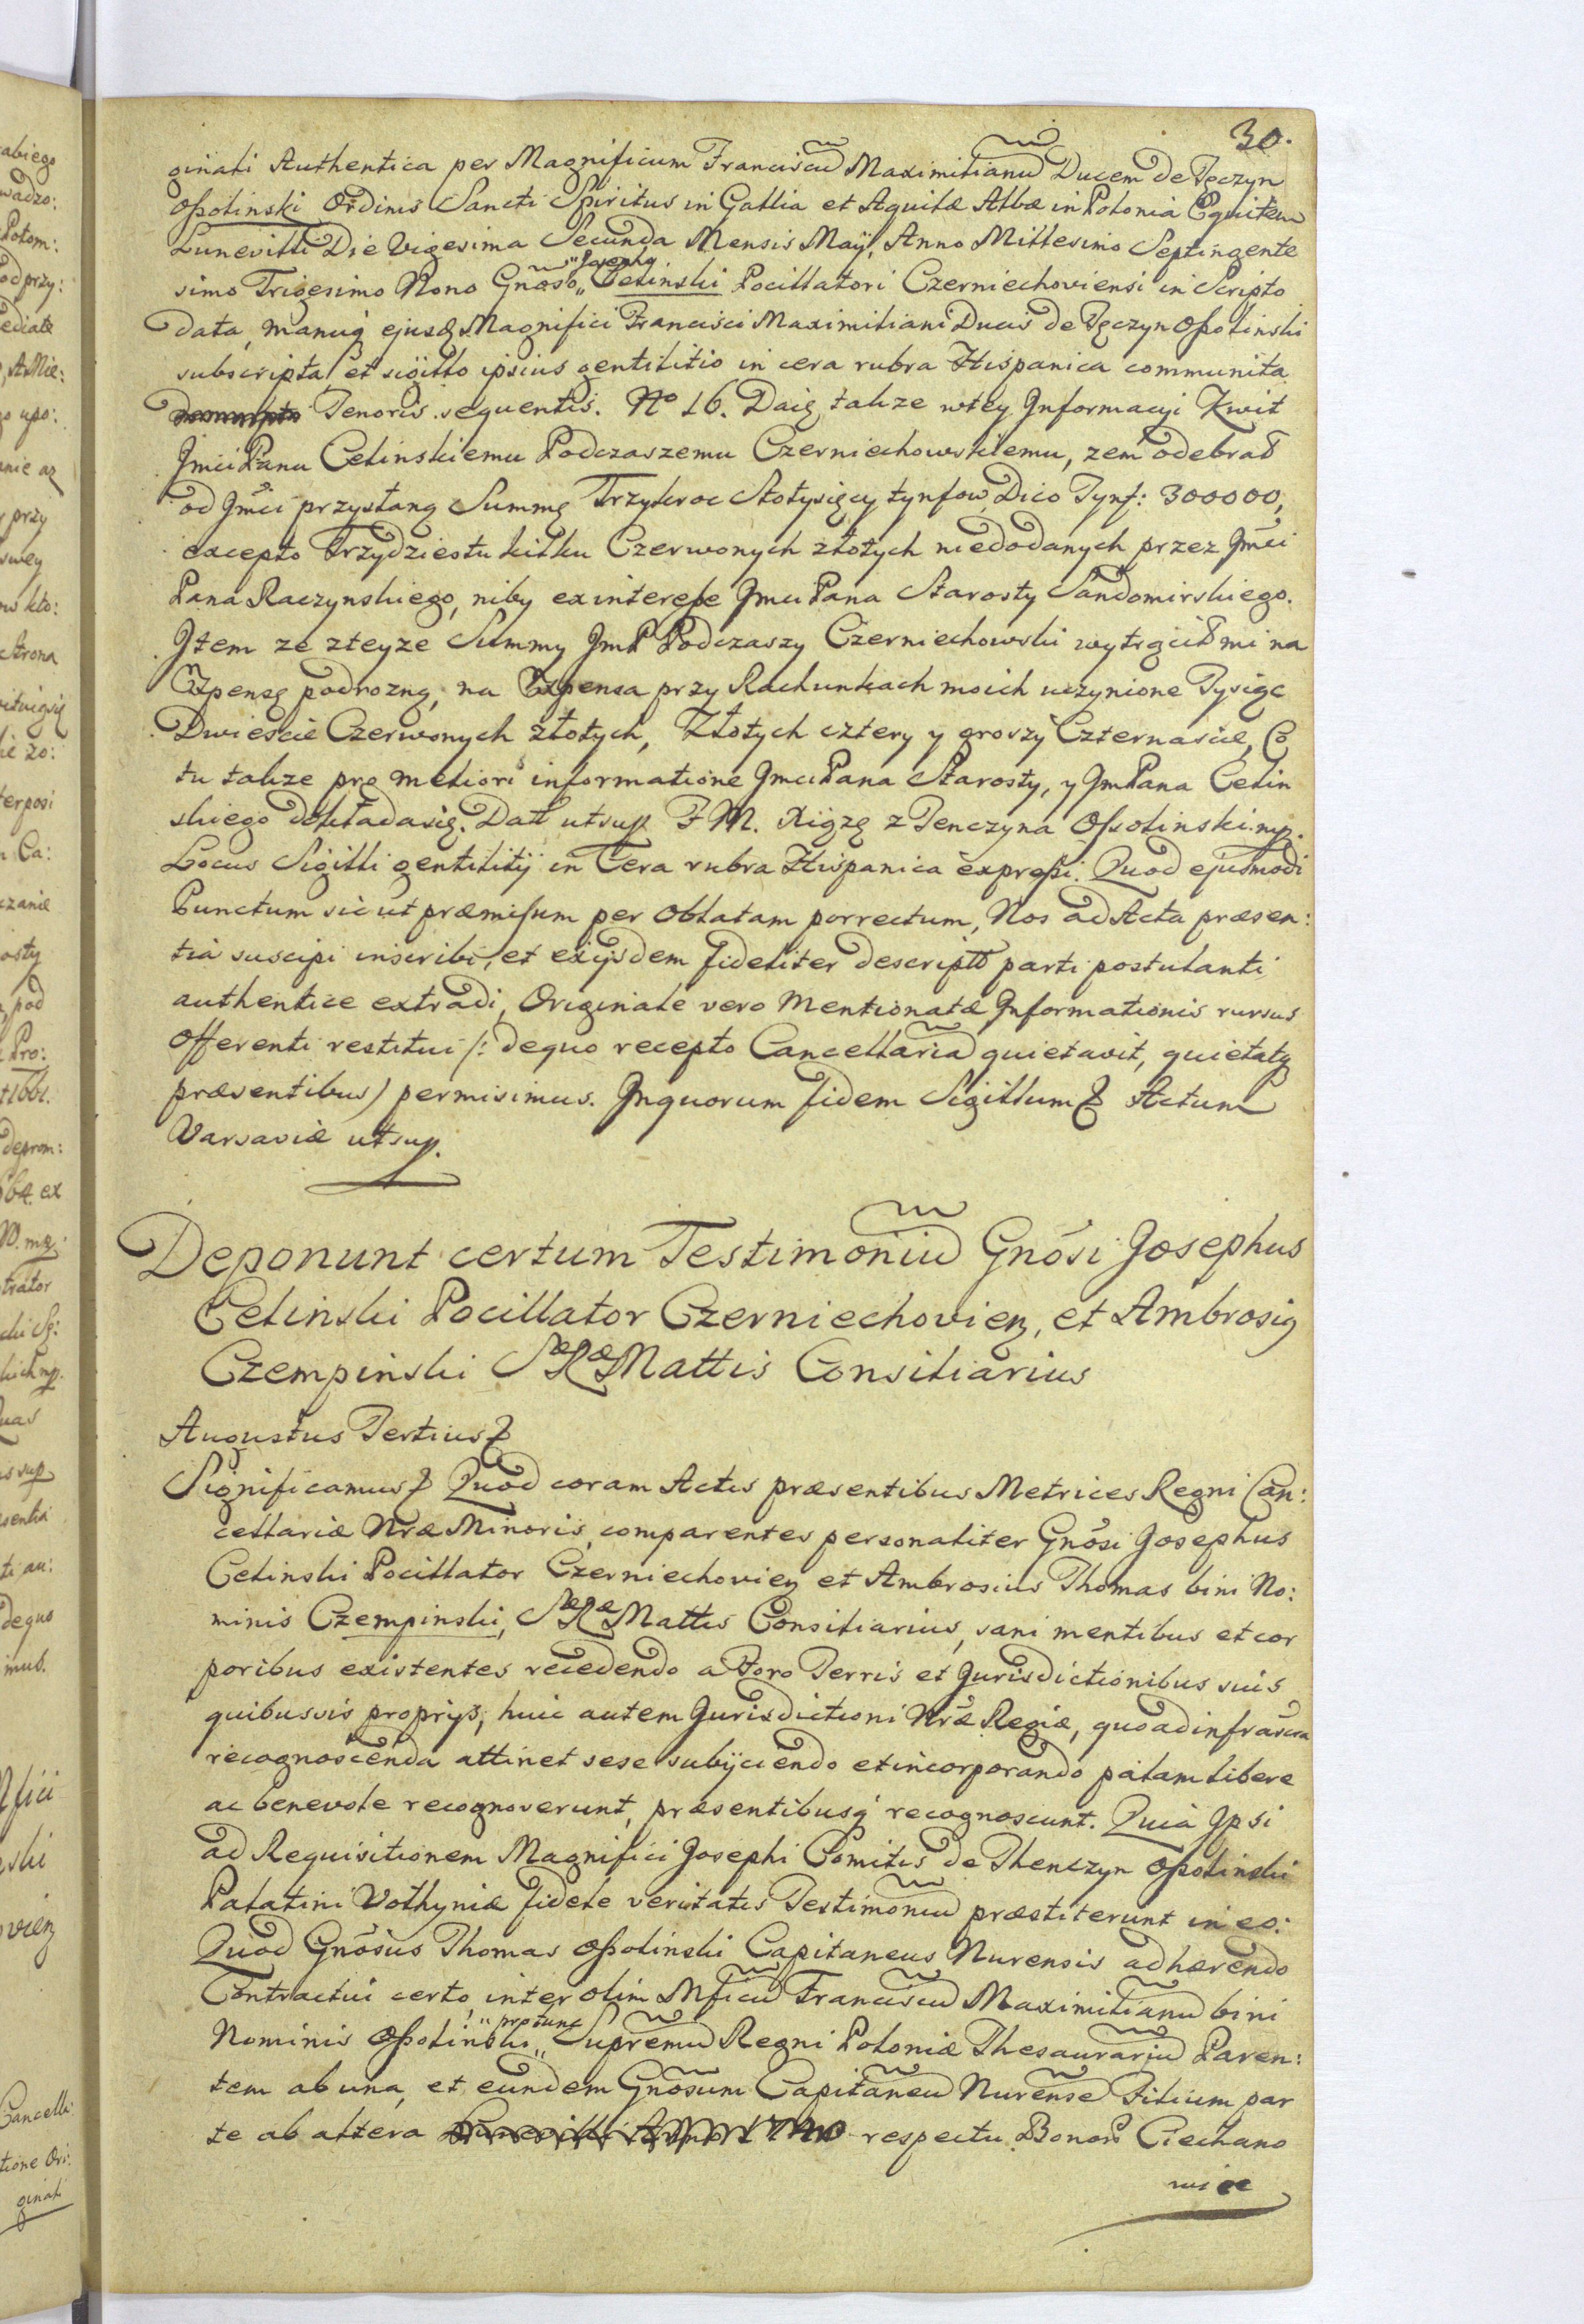 30.
ginali Authentica per Magnificum Franciscū Maximilianū Ducem de Tęczyn
Ossolinski Ordinis Sancti Spiritus in Gallia et Aquilæ Albæ in Polonia Equitem
Lunevilli Die Vigesima Secunda Mensis Maÿ, Anno Millesimo Septingente
simo Trigesimo Nono Gnoso „Josepho„ Celinski Pocillatori Czerniechoviensi in Scripto
data, manuq́ ejusdē Magnifici Francisci Maximiliani Ducis de Tęczyn Ossolinski
subscripta et sigillo ipsius gentilitio in cera rubra Hispanica communita
Tenoris sequentis. No 16. Daię takze wtey Jnformacyi Kwit
Jmci Panu Celinskiemu Podczaszemu Czerniechowskiemu, zem odebrał
od Jmci przysłaną Summę Trzykroc Stotysięcy tynfow Dico Tynf: 300000,
excepto Trzydziestu kilku Czerwonych złotych niedodanych przez Jmci
Pana Raczynskiego, niby ex interesse Jmci Pana Starosty Sandomirskiego.
Jtem ze zteyze Summy JmP Podczaszy Czerniechowski wytrącił mi na
Expensę podrozną, na Expensa przy Rachunkach moich uczynione Tysiąc
Dwiescie Czerwonych złotych, Złotych cztery y groszy Czternascie, Co
tu takze pro meliori informatione Jmci Pana Starosty, y JmPana Celin
skiego dokładasię. Datt utsup F M. Xiązę z Tenczyna Ossolinski mp.
Locus Sigilli gentilitÿ in Cera rubra Hispanica expressi. Quod ejusmodi
Punctum sic ut præmissum per Oblatam porrectum, Nos ad Acta præsen:
tia suscipi inscribi, et exijsdem fideliter descriptū parti postulanti
authentice extradi, Originale vero Mentionatæ Jnformationis rursus
Offerenti restitui /: dequo recepto Cancellariā quietavit, quietatq
præsentibus) permisimus. Jnquorum fidem Sigillum & Actum
Varsaviæ utsup.
Deponunt certum Testimoniū Gnosi Josephus
Celinski Pocillator Czerniechovien, et Ambrosiq
Czempinski SæRæMattis Consiliarius
Augustus Tertius &
Significamus & Quod coram Actis præsentibus Metrices Regni Can:
cellariæ Nræ Minoris, comparentes personaliter Gnosi Josephus
Celinski Pocillator Czerniechovien et Ambrosius Thomas bini No:
minis Czempinski, SæRæMattis Consiliarius, sani mentibus et cor
poribus existentes recedendo a Foro Terris et Jurisdictionibus suis
quibusvis proprÿs, huic autem Jurisdictioni Nræ Regiæ, quoad infrascra
recognoscenda attinet sese subÿciendo et incorporando palam libere
ac benevole recognoverunt, præsentibusq́ recognoscunt. Quia Jpsi
ad Requisitionem Magnifici Josephi Comitis de Thenczyn Ossolinski
Palatini Volhyniæ fidele veritatis Testimoniū præstiterunt in eo:
Quod Gnosus Thomas Ossolinski Capitaneus Nurensis adhærendo
Contractui certo, inter olim Mficū Franciscū Maximilianū bini
Nominis Ossolinski „protunc„ Supremū Regni Poloniæ Thesaurariū Paren:
tem ab una, et eundem Gnosum Capitaneū Nurense Filium par
te ab altera respectu Bonorū Ciechano
wice